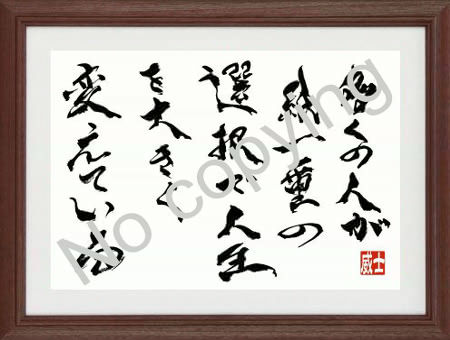 多くの人が
紙一重の
選択で人生
を大きく
変えている
威士
No copying